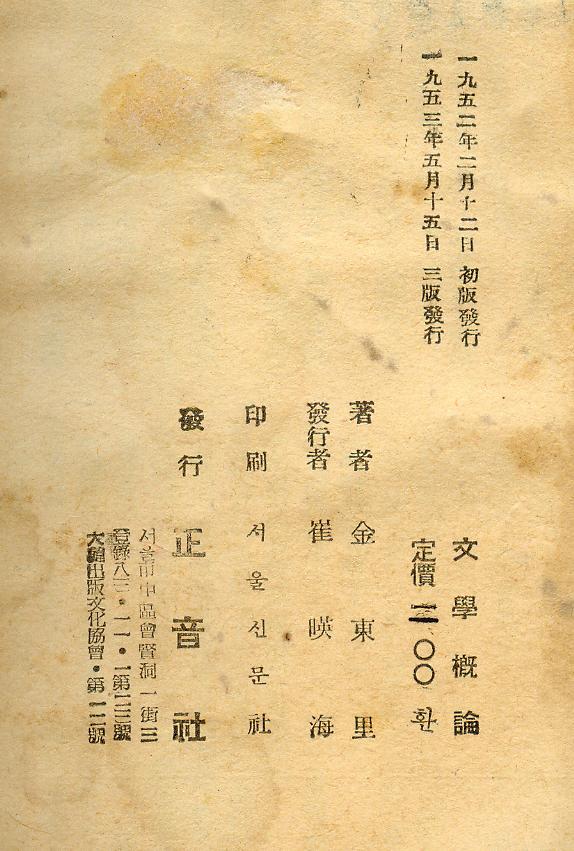 一九五二年二月十二日 初版發行
一九五三年五月十五日 三版發行
文學槪論
定價 〇〇환
著者 金東里
發行者 崔暎海
印刷 서울신문社
發行 正音社
서울市中區會賢洞一街三
登錄八三・一一・一第一二三號
大韓出版文化協會・第一二號